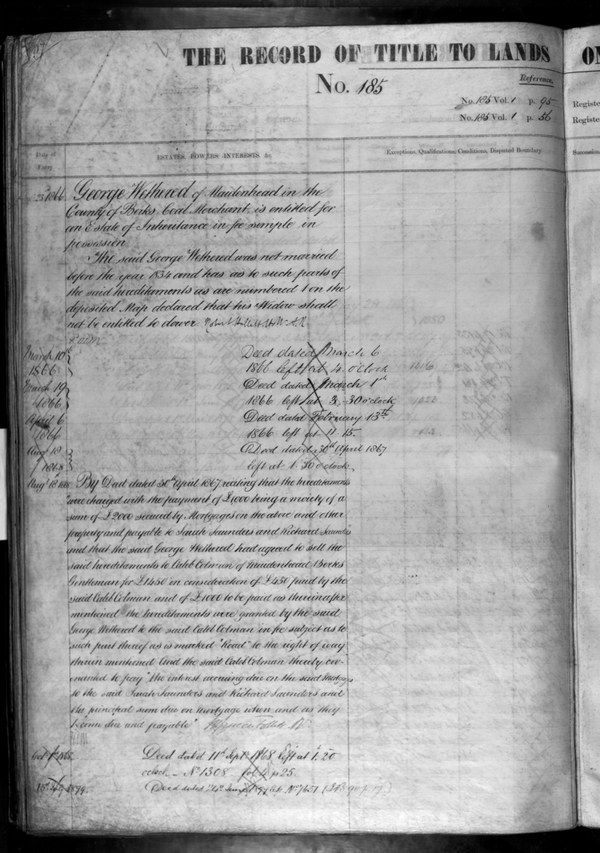 THE RECORD OF TITLE TO LANDS
ON
No. 185
Reference.
No. 185 Vol. 1 p. 95
No. 185 Vol. 1 p. 56
Registe
Registe
ESTATES, POWERS INTERESTS, &c
Exceptions, Qualifications, Conditions, Disputed Boundary
1866 George Wethered of Maidenhead in the
County of Berks Coal Merchant is entitled for
an Estate of Inheritance in fee simple in
possession
The said George Wethered was not married
before the year 1834 and has as to such parts of
the said hereditaments as are numbered 1 on the
deposited Map declared that his Widow shall
not be entitled to dower
March 10
1866
Deed dated March 6
1866 left at 4 o'clock
March 19
1866
Deed dated March 1st
1866 left at 3.30 o'clock
April 6
1866
Deed dated February 13th
1866 left at 11 15.
Augt 18
1868
Deed dated 30th April 1867
left at 1.30 o'clock
Augt 18 By Deed dated 30th April 1867 reciting that the hereditaments
were charged with the payment of £1000 being a moiety of a
sum of £2000 secured by Mortgages on the above and other
property and payable to Sarah Saunders and Richard Saunders
and that the said George Wethered had agreed to sell the
said hereditaments to Caleb Colman of Maidenhead Berks
Gentleman for £1450 in consideration of £450 paid by the
said Caleb Colman and of £1000 to be paid as thereinafter
mentioned the hereditaments were granted by the said
George Wethered to the said Caleb Colman in fee subject as to
such part thereof as is marked "Road" to the right of way
therein mentioned And the said Caleb Colman thereby cov-
enanted to pay "the interest accruing due on the said Mortgage
to the said Sarah Saunders and Richard Saunders and
the principal sum due on mortgage when and as they
become due and payable"
Deed dated 11th Sept 1868 left at 1.20
o'clock - No 1308 fol. p 25.
Deed dated